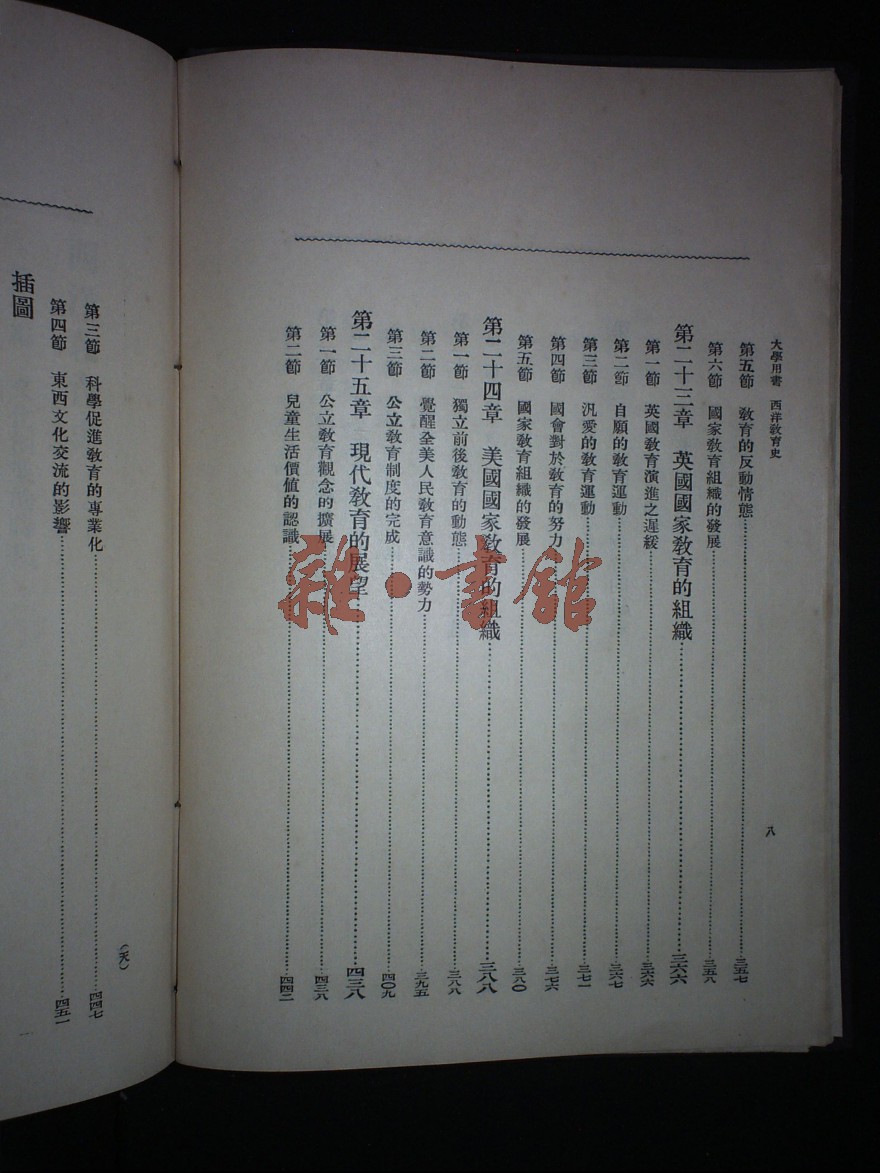 大學用書　西洋教育史
八
第五節　教育的反動情態…三五七
第六節　國家教育組織的發展…三五八
第二十三章　英國國家教育的組織…三六六
第一節　英國教育演進之遲緩…三六六
第二節　自願的教育運動…三六七
第三節　汎愛的教育運動…三七一
第四節　國會對於教育的努力…三七六
第五節　國家教育組織的發展…三八〇
第二十四章　美國國家教育的組織…三八八
第一節　獨立前後教育的動態…三八八
第二節　覺醒全美人民教育意識的勢力…三九五
第三節　公立教育制度的完成…四〇九
第二十五章　現代教育的展望…四三八
第一節　公立教育觀念的擴展…四三八
第二節　兒童生活價值的認識…四四二
第三節　科學促進教育的專業化…四四七
第四節　東西文化交流的影響…四五一
插圖
雜·書館